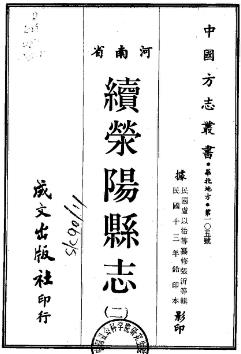 中國方志叢書・華北地方・第一〇五號
據民國盧以洽等纂修張沂等輯
民國十三年鉛印本影印
河南省
續滎陽縣志
(二)
成文出版社印行